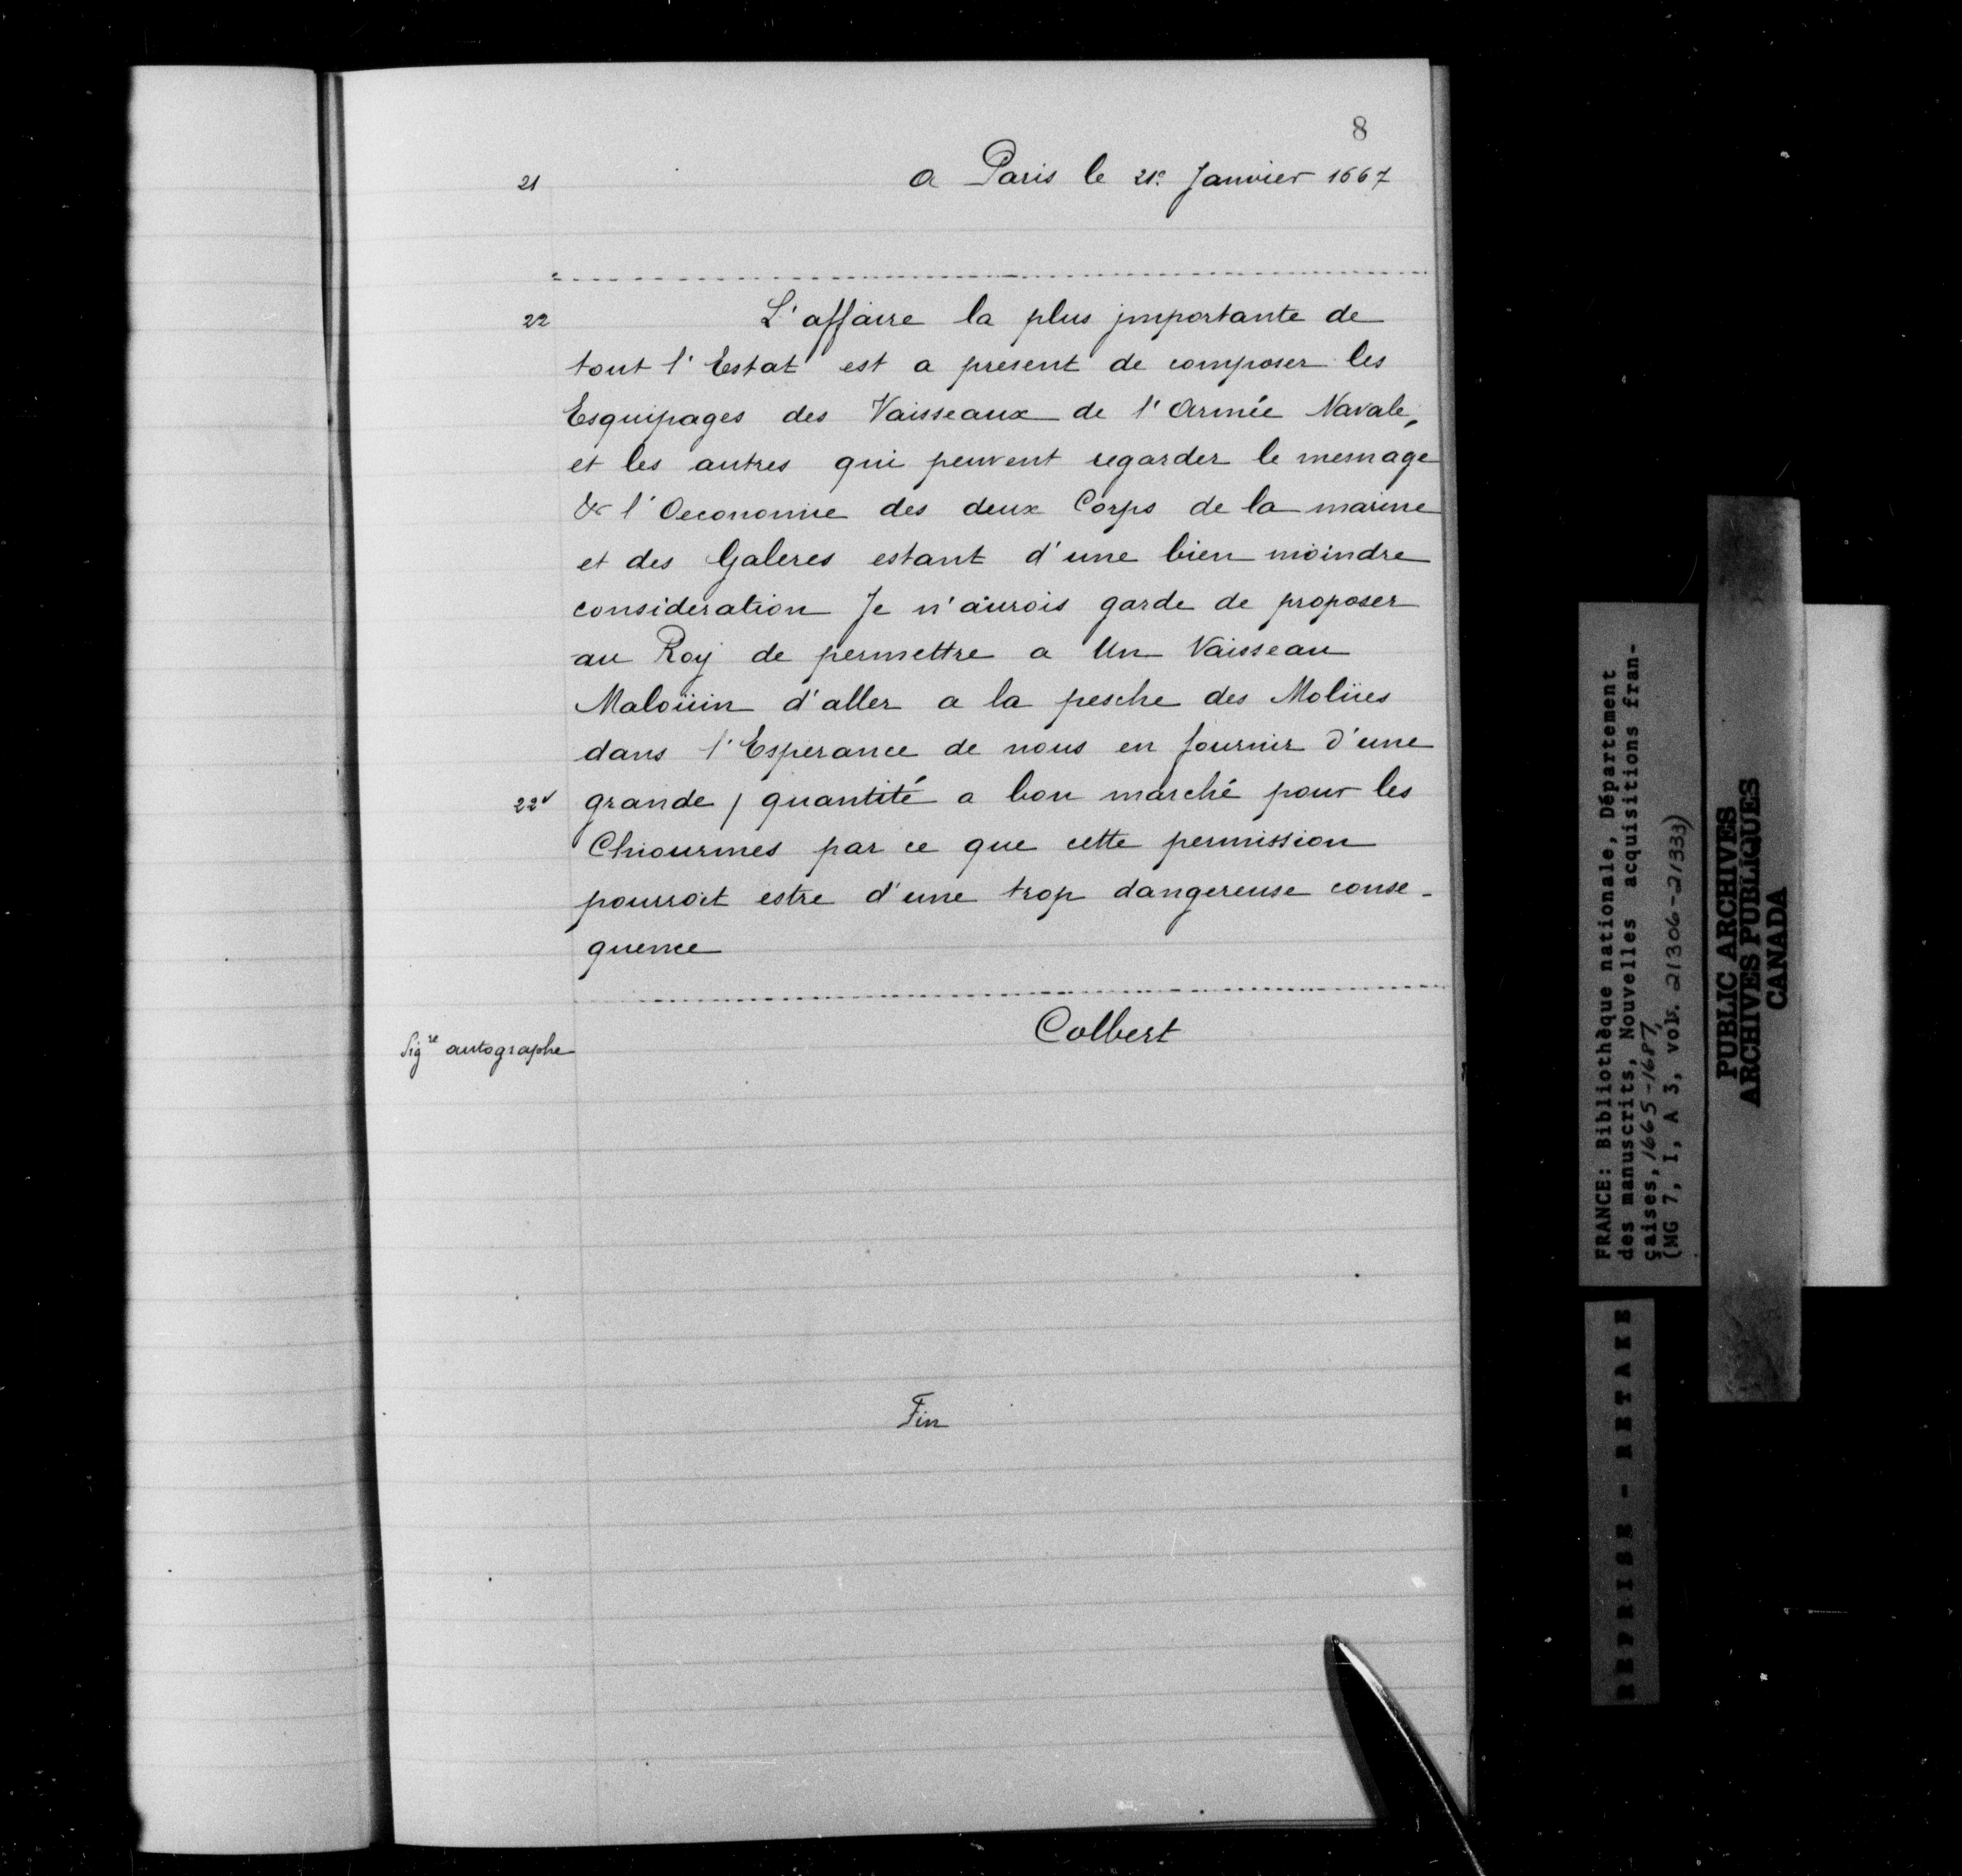 8
21 a Paris le 21e Janvier 1667
22 L'affaire la plus jmportante de
tout l'Estat est a present de composer les
Esquipages des Vaisseaux de l'Armée Navale,
et les autres qui peuvent regarder le mesnage
& l'Oeconomie des deux Corps de la marine
et des Galeres estant d'une bien moindre
consideration Je n'aurois garde de proposer
au Roy de permettre a Un Vaisseau
Maloüin d'aller a la pesche des Molües
dans l'Esperance de nous en fournir d'une
22v grande / quantité a bon marché pour les
Chiourmes par ce que cette permission
pourroit estre d'une trop dangereuse conse-
quence
Colbert
Sigre autographe
Fin
FRANCE: Bibliothèque nationale, Département
des manuscrits, Nouvelles acquisitions fran-
çaises, 1665-1687,
(MG 7, I, A 3, vols. 21306-21333)
PUBLIC ARCHIVES
ARCHIVES PUBLIQUES
CANADA
REPRISE - RETAKE